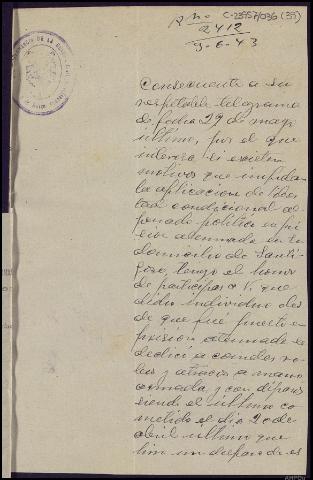 C-23957/036 (39)
R. No
2412
9-6-43
Consecuente a su
respetable telegrama
de fecha 29 de mayo
último, por el que
interesa si existen
motivos que impidan
la aplicación de liber
tad condicional al
penado político en pri
sión atenuada en su
domicilio de Santi-
, tengo el honor
de participar a V. que
dicho individuo des
de que fué puesto en
prisión atenuada se
dedicó a cometer ro-
bos y atracos a mano
armada, y con disparos
siendo el último co
metido el día 20 de
abril último que
hizo un disparo de es